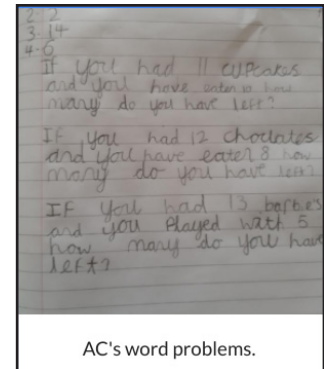 2. 12
3. 14
4. 6
If you had 11 cupcakes
and you have eaten 10 how
many do you have left?
If you had 12 choclates
and you have eaten 8 how
many do you have left?
IF you had 13 barbies
and you Played with 5
how many do you have
left?
AC's word problems.